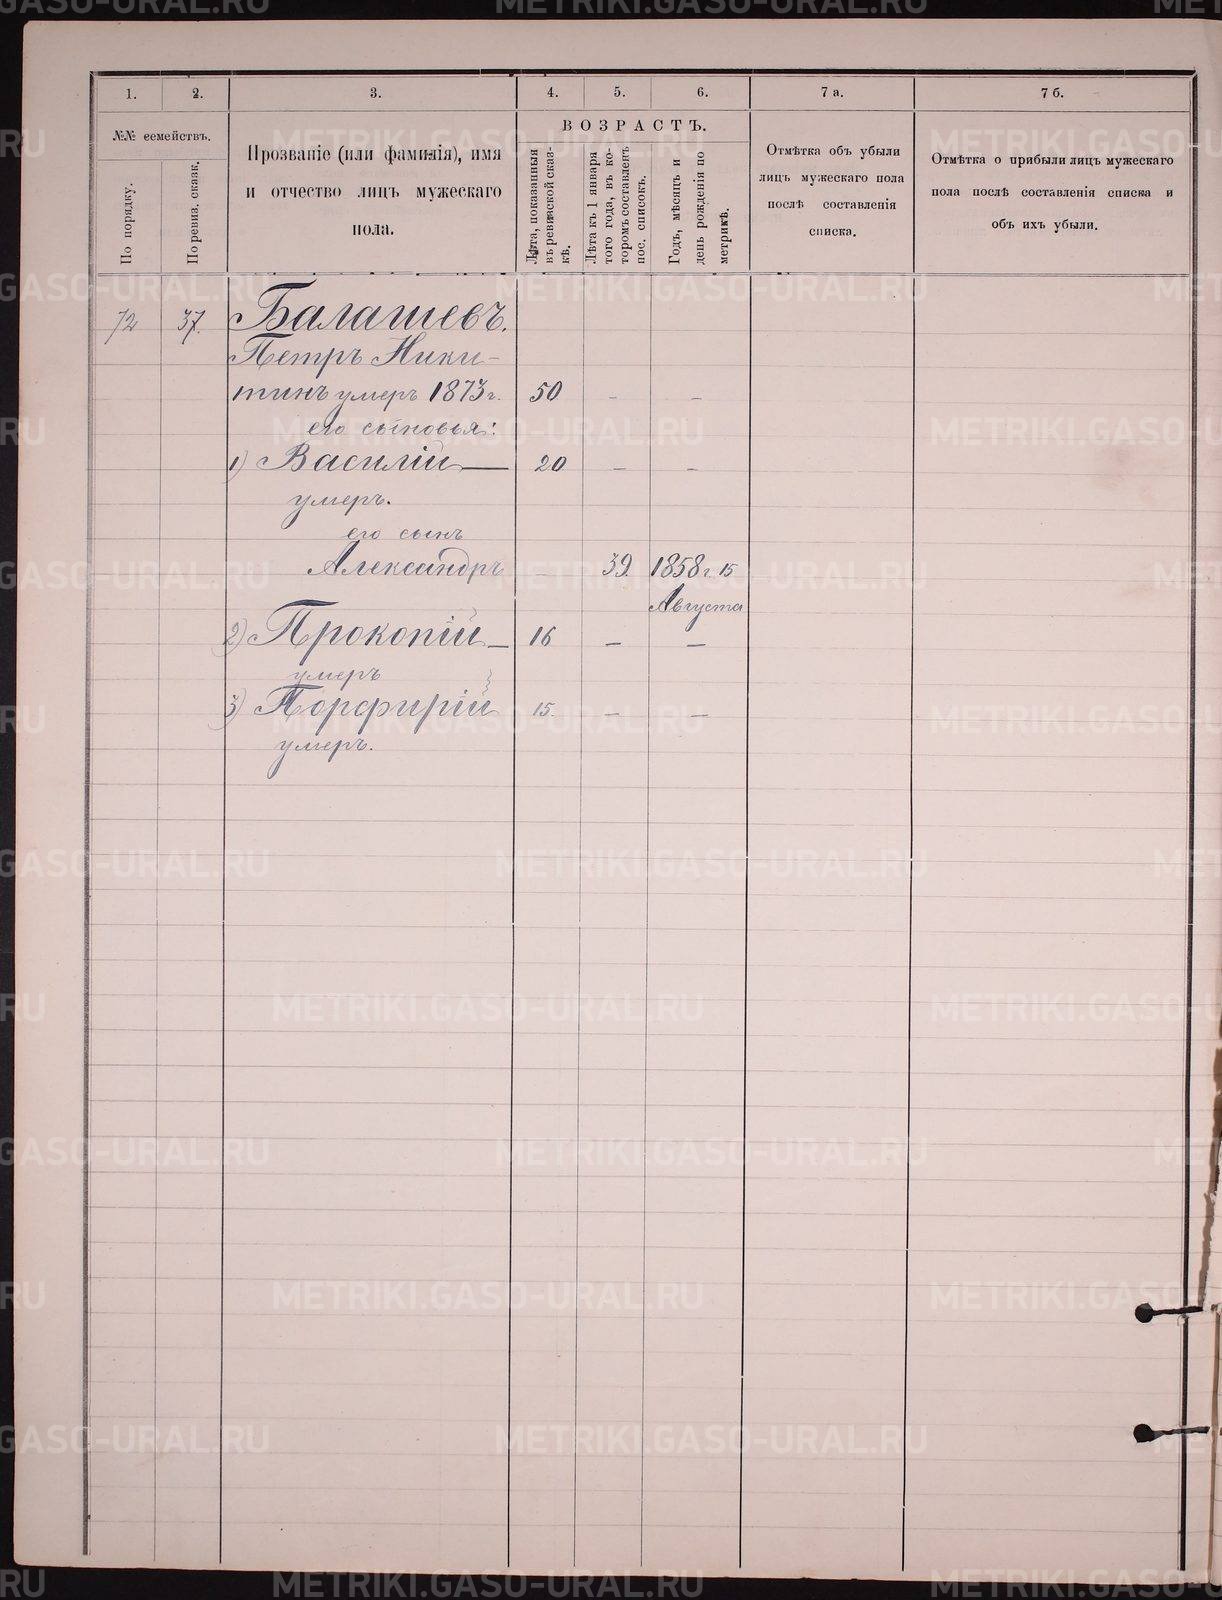 1. 2. 3. 4. 5. 6. 7 а. 7 б.
№№ семействъ.
По порядку.
По ревиз. сказк.
Прозваніе (или фамилія), имя
и отчество лицъ мужескаго
пола.
ВОЗРАСТЪ.
Лѣта, показанныя
въ ревизской сказ-
кѣ.
Лѣта къ 1 января
того года, въ ко-
торомъ составленъ
пос. списокъ.
Годъ, мѣсяцъ и
день рожденія по
метрикѣ.
Отмѣтка объ убыли
лицъ мужескаго пола
послѣ составленія
списка.
Отмѣтка о прибыли лицъ мужескаго
пола послѣ составленія списка и
объ ихъ убыли.
72 37. Балашевъ.
Петръ Ники-
тинъ умеръ 1873 г. 50 - -
его сыновья:
1) Василій — 20 - -
умеръ.
его сынъ
Александръ - 39. 1858 г. 15
Августа
2) Прокопій — 16 - -
умеръ
3) Порфирій 15. - -
умеръ.
METRIKI.GASO-URAL.RU